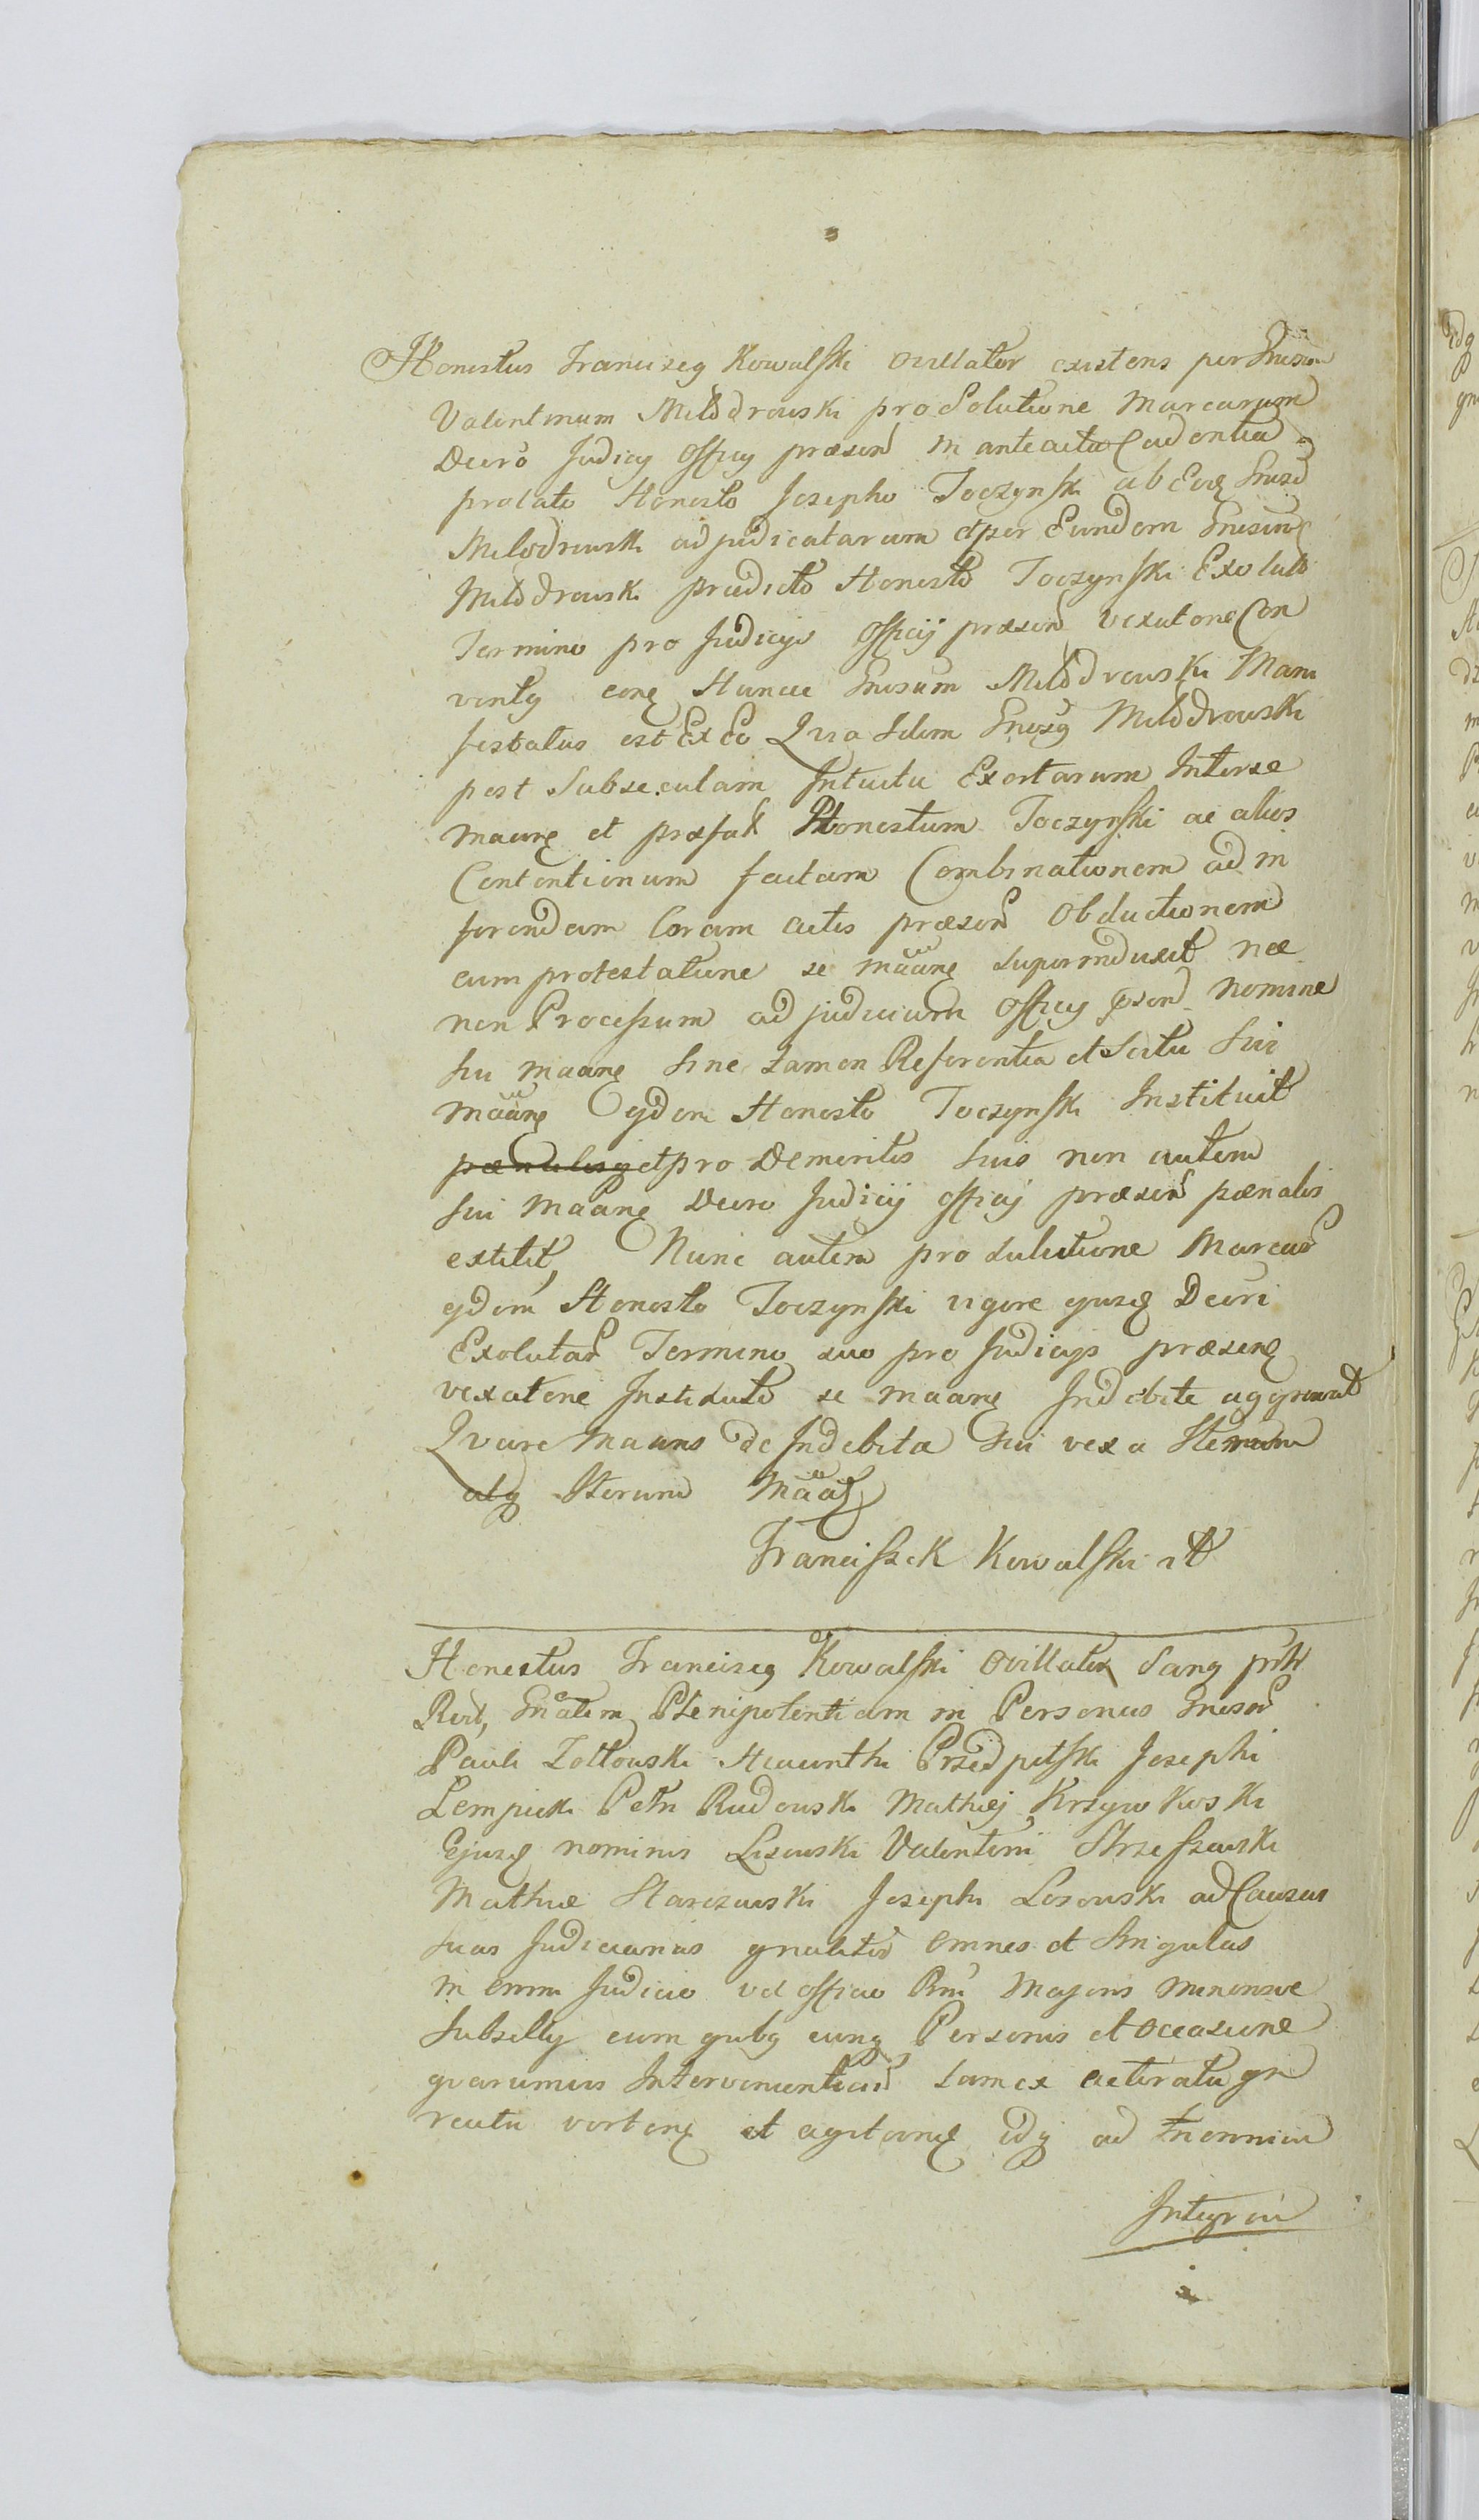 Honestus Franciscq Kowalski ovillator existens per Gnesum
Valentinum Milodrowski pro Solutione Marcarum
Decro Judicy Officy præsen in anteacta Cadentia
prolato Honesto Josepho Toczynski ab Eode Gneso
Milodrowski adjudicatarum et per Eundem Gnesum
Milodrowski prædicto Honesto Toczynski Exolut
Termino pro Judicys Officij præsen vexatorie Con
ventq cone Hunce Gnesum Milodrowski Mani
festatus est Ex Eo Qvia Idem Gnesq Milodrowski
post Subsecutam Intuitu Exortarum Interse
maane et præfat Honestum Toczynski ac alios
Contentionum factam Combinationem ad in
ferendam Coram actis præsen Obductionem
cum protestatione se maane superinduxit nec
non Processum ad judicium Officy præsen Nomine
sui maane sine tamen Referentia et Scitu Sui
maane Eydem Honesto Toczynski Instituit
et pro Demeritis suis non autem
sui maane Decro Judicij officij præsen pœnalis
extitit, Nunc autem pro solutione Marcar
eydem Honesto Toczynski vigore ejusd Decri
Exolutar Termino suo pro Judicys præsen
vexatorie Instituto se maane Indebite aggravat
Qvare maans de Indebita sui vexa Iterum
atq Iterum maa
Franciszek Kowalski
Honestus Franciscq Kowalski Ovillator Sanq
Plenipotentiam in Personas Gnesor
Pauli Zoltowski Hiacinthi Przedpelski Josephi
Lempicki Petri Rudowski Mathiej Krzywkoski
Ejusd nominis Lisowski Valentini Strzeszewski
Mathiæ Starczewski Josephi Losowski ad Causas
suas Judiciarias gnaliter omnes et Singulas
in omni Judicio vel officio Rni Majoris minorisve
Subselly cum qvibq cunq Personis et occasione
qvarumvis Intervenientiar tam ex actoratu qm
reatu verten et agitan idq ad triennium
Integrum